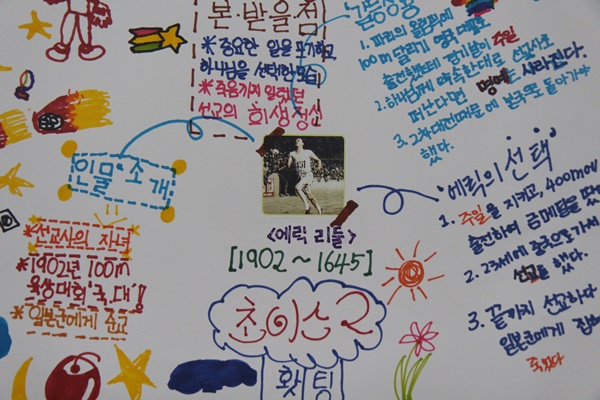 본·받을점
*중요한 일을 포기하고
하나님을 선택한 모습
*죽음까지 잃었던
선교의 희생정신
갈등상황
1. 파리의 올림픽에
100m 달리기 영국 대표로
출전했는데 경기날이 주일
2. 하나님께 약속한대로 선교사로
떠난다면 명예는 사라진다.
3. 2차대전때문에 본국으로 돌아가야
했다.
인물 소개
*선교사의 자녀
*1902년 100m
육상대회 국.대!
*일본군에게 순교
<에릭 리들>
[1902 ~ 1645]
초이스 2
홧팅
'에릭의 선택'
1. 주일을 지키고, 400m에
출전하여 금메달을 땄
2. 23세에 중국으로 가서
선교를 했다.
3. 끝까지 선교하다
일본군에게 잡혀
죽었다